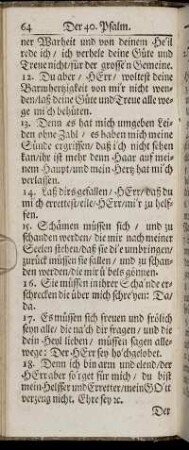 64 Der 40. Psalm.
ner Warheit und von deinem He'il
rede ich / ich verhele deine Güte und
Treue nicht / für der grosse'n Gemeine.
12. Du aber / HErr / woltest deine
Barmhertzigkeit von mi'r nicht wen-
den / laß deine Güte und Treue alle we-
ge mi'ch behüten.
13. Denn es hat mich umgeben Lei-
den ohne Zahl / es haben mich meine
Sünde ergriffen / daß i'ch nicht sehen
kan / ihr ist mehr denn Haar auf mei-
nem Haupt / und mein Hertz hat mi'ch
verlassen.
14. Laß dirs gefallen / HErr / daß du
mi'ch errettest / eile / HErr / mi'r zu helf-
fen.
15. Schämen müssen sich / und zu
schanden werden / die mir nach meiner
Seelen stehen / daß sie die umbringen /
zurück müssen sie fallen / und zu schan-
den werden / die mir ü'bels gönnen.
16. Sie müssen in ihrer Scha'nde er-
schrecken die über mich schre'yen: Da /
Da.
17. Es müssen sich freuen und frölich
seyn alle / die na'ch dir fragen / und die
dein Heyl lieben / müssen sagen alle-
wege: Der HErr sey ho'chgelobet.
18. Denn ich bin arm und elend / der
HErr aber so'rget für mich / du bist
mein Helffer und Erretter / mein GO'tt
verzeug nicht. Ehre sey ꝛc.
Der